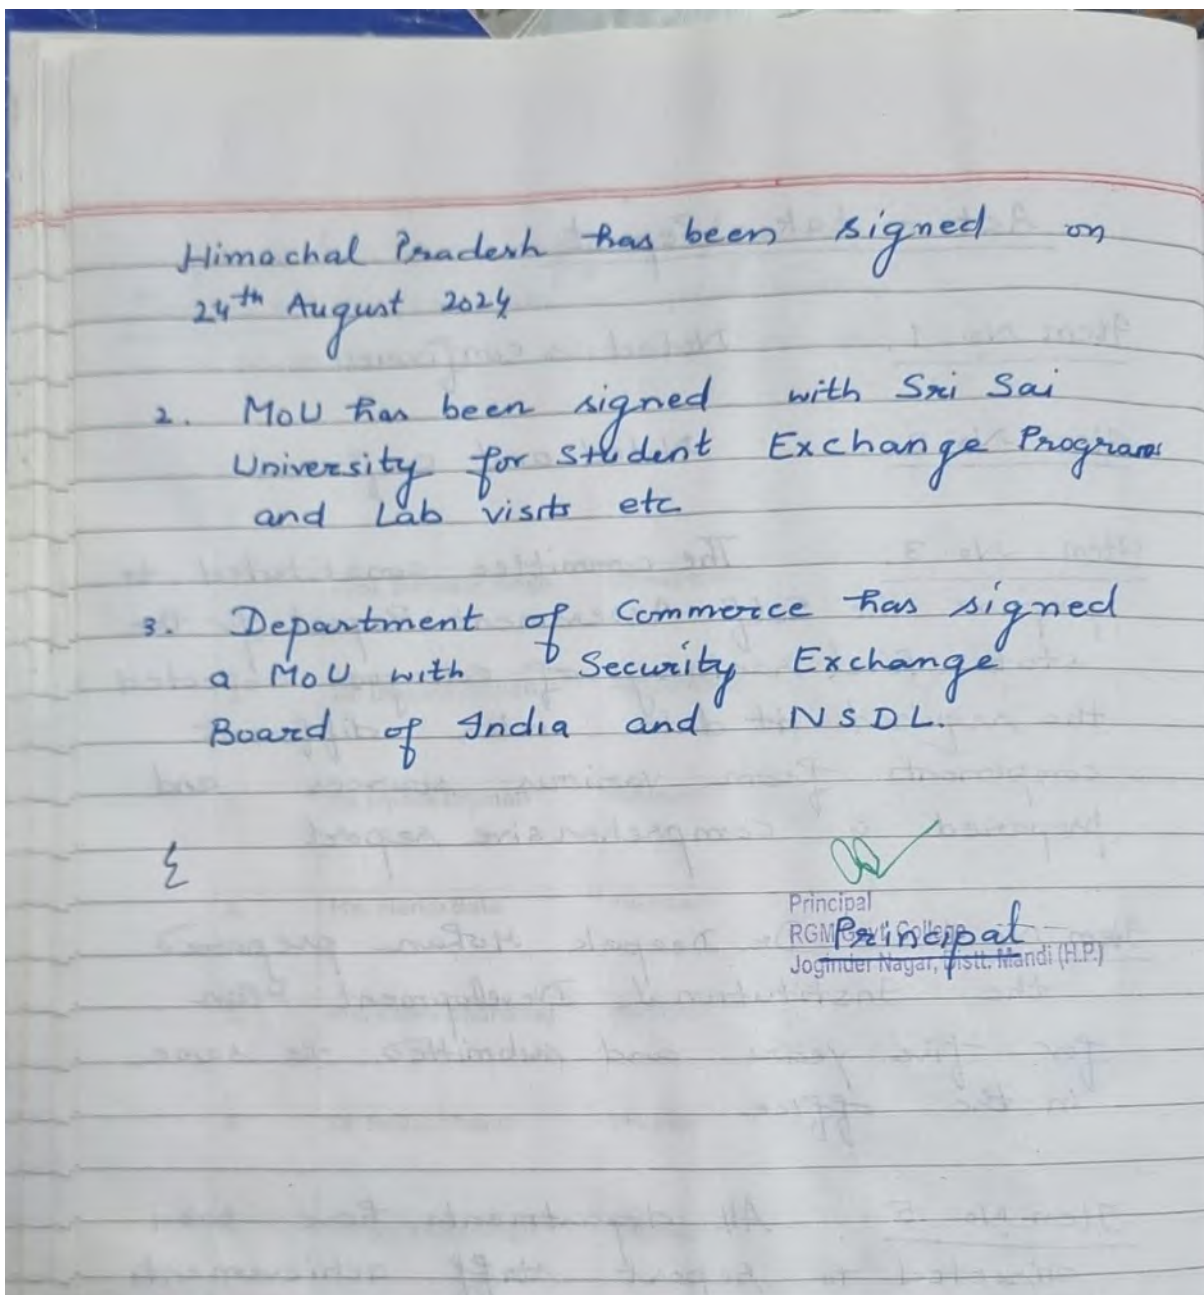 Himachal Pradesh has been signed on
24th August 2024
2. MoU has been signed with Sri Sai
University for Student Exchange Programs
and Lab visits etc
3. Department of Commerce has signed
a MoU with Security Exchange
Board of India and NSDL.
Principal
RGM Govt. College
Principal
Joginder Nagar, Distt. Mandi (H.P.)